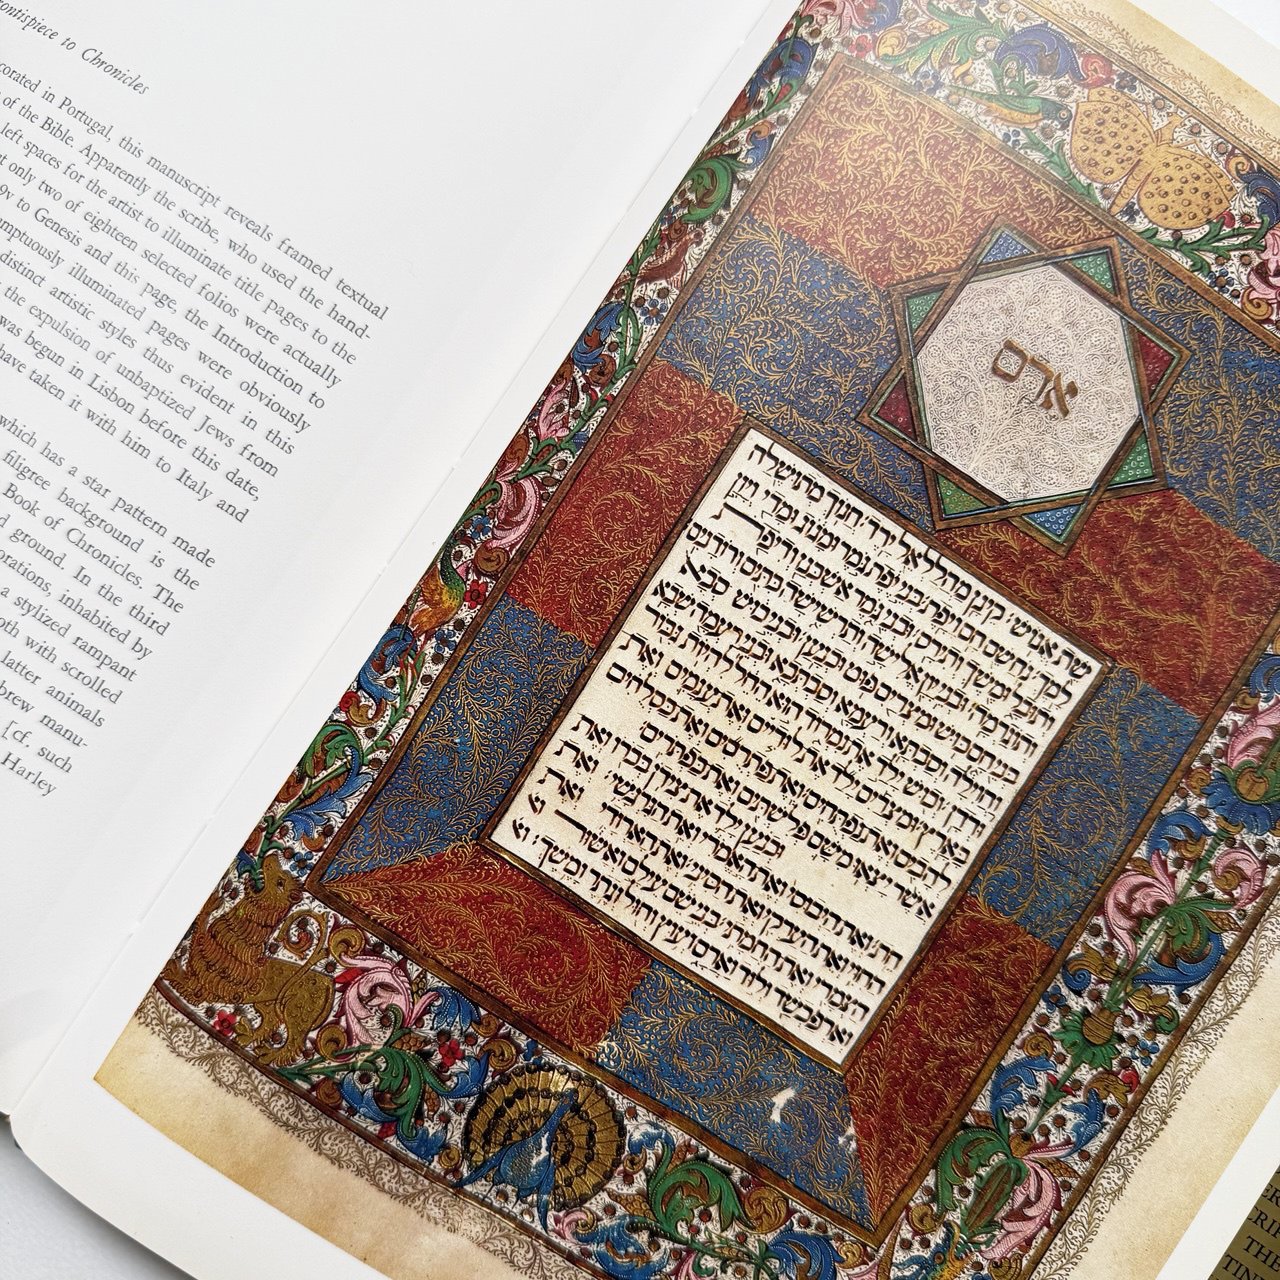 ontispiece to Chronicles
corated in Portugal, this manuscript reveals framed textual
of the Bible. Apparently the scribe, who used the hand-
left spaces for the artist to illuminate title pages to the
only two of eighteen selected folios were actually
9v to Genesis and this page, the Introduction to
mptuously illuminated pages were obviously
distinct artistic styles thus evident in this
the expulsion of unbaptized Jews from
was begun in Lisbon before this date,
have taken it with him to Italy and
which has a star pattern made
filigree background is the
Book of Chronicles. The
ground. In the third
orations, inhabited by
a stylized rampant
oth with scrolled
latter animals
brew manu-
[cf, such
Harley
אדם
שת אנוש׃ קינן מהללאל ירד׃ חנוך מתושלח
למך׃ נח שם חם ויפת׃ בני יפת גמר ומגוג ומדי ויון
ותובל ומשך ותירס׃ ובני גמר אשכנז ודיפת
ותוגרמה׃ ובני יון אלישה ותרשישה כתים ורודנים
בני חם כוש ומצרים פוט וכנען׃ ובני כוש סבא
וחוילה וסבתא ורעמא וסבתכא ובני רעמה שבא
ודדן׃ וכוש ילד את נמרוד הוא החל להיות גבור
בארץ׃ ומצרים ילד את לודיים ואת ענמים ואת
להבים ואת נפתחים׃ ואת פתרסים ואת כסלחים
אשר יצאו משם פלשתים ואת כפתרים׃
וכנען ילד את צידון בכרו ואת
חת׃ ואת היבוסי ואת האמרי ואת הגרגשי׃ ואת
החוי ואת הערקי ואת הסיני׃ ואת הארודי ואת
הצמרי ואת החמתי׃ בני שם עילם ואשור
וארפכשד ולוד וארם ועוץ וחול וגתר ומשך׃ וא